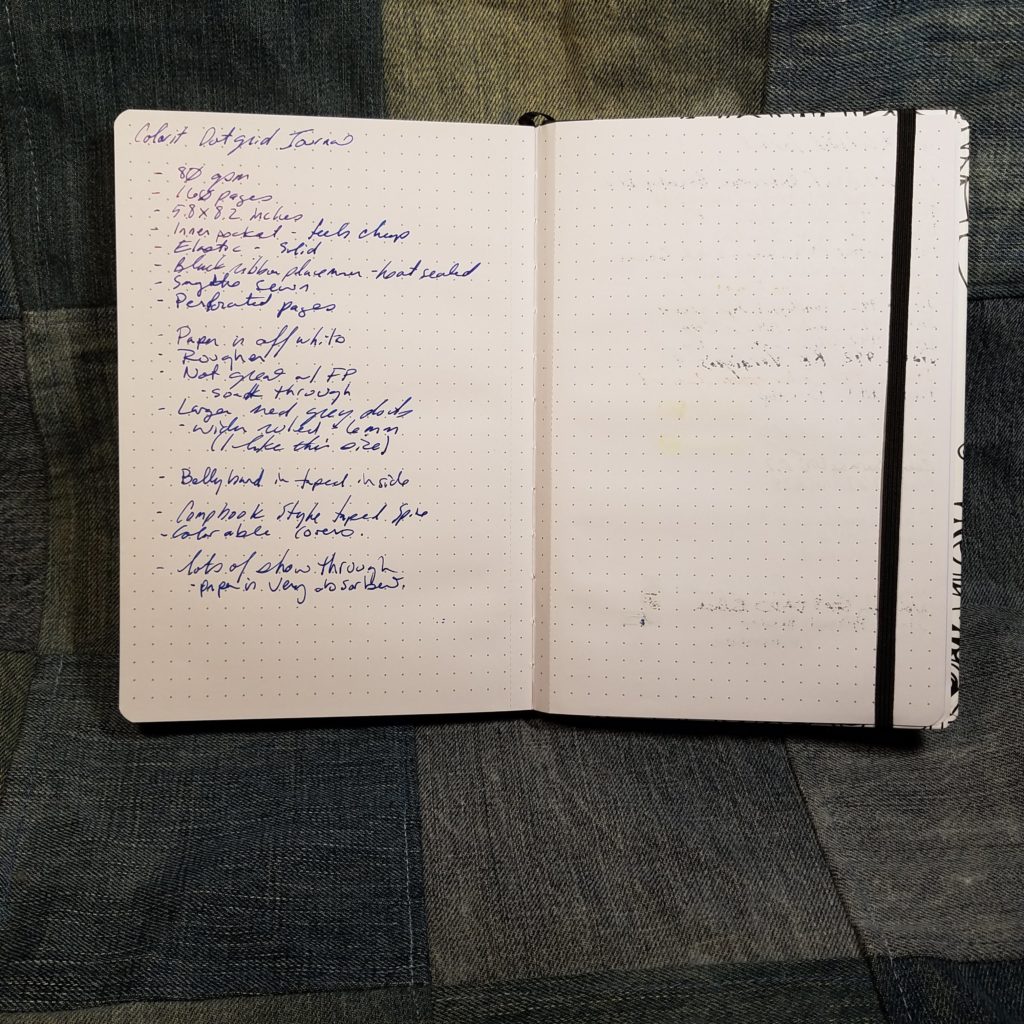 Colorit Dot grid Journal
- 80 gsm
- 160 pages
- 5.8 x 8.2 inches
- Inner pocket - feels cheap
- Elastic - Solid
- Black ribbon placement - heat sealed
- Smythe sewn
- Perforated pages
- Paper is off white
- Rougher
- Not great w/ FP
- soak through
- Larger med grey dots
- wider ruled 6mm
(I like this size)
- Bellyband is taped inside
- Compbook style taped spine
- Colorable covers.
- lots of show through
- paper is very absorbent.